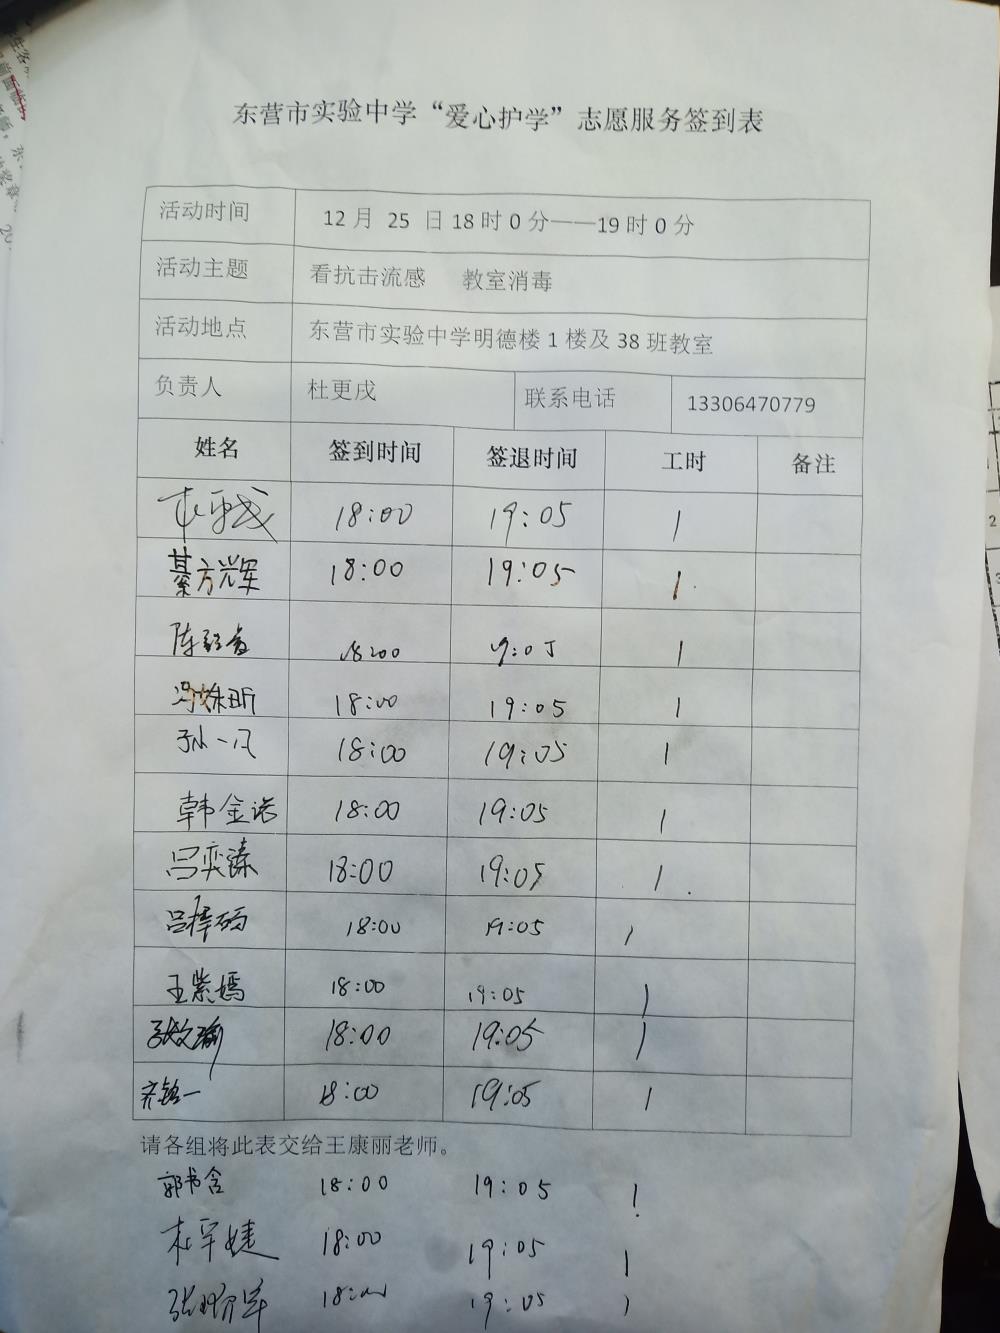 东营市实验中学“爱心护学”志愿服务签到表
活动时间 12月 25 日18时0分——19时0分
活动主题 看抗击流感 教室消毒
活动地点 东营市实验中学明德楼1楼及38班教室
负责人 杜更戌 联系电话 13306470779
姓名 签到时间 签退时间 工时 备注
18:00 19:05 1
綦方辉 18:00 19:05 1
18:00 19:05 1
18:00 19:05 1
孙一凡 18:00 19:05 1
韩金诺 18:00 19:05 1
吕奕臻 18:00 19:05 1
吕梓硕 18:00 19:05 1
王紫嫣 18:00 19:05 1
张文瑜 18:00 19:05 1
齐铭一 18:00 19:05 1
请各组将此表交给王康丽老师。
郭书含 18:00 19:05 1
杜军婕 18:00 19:05 1
18:00 19:05 1